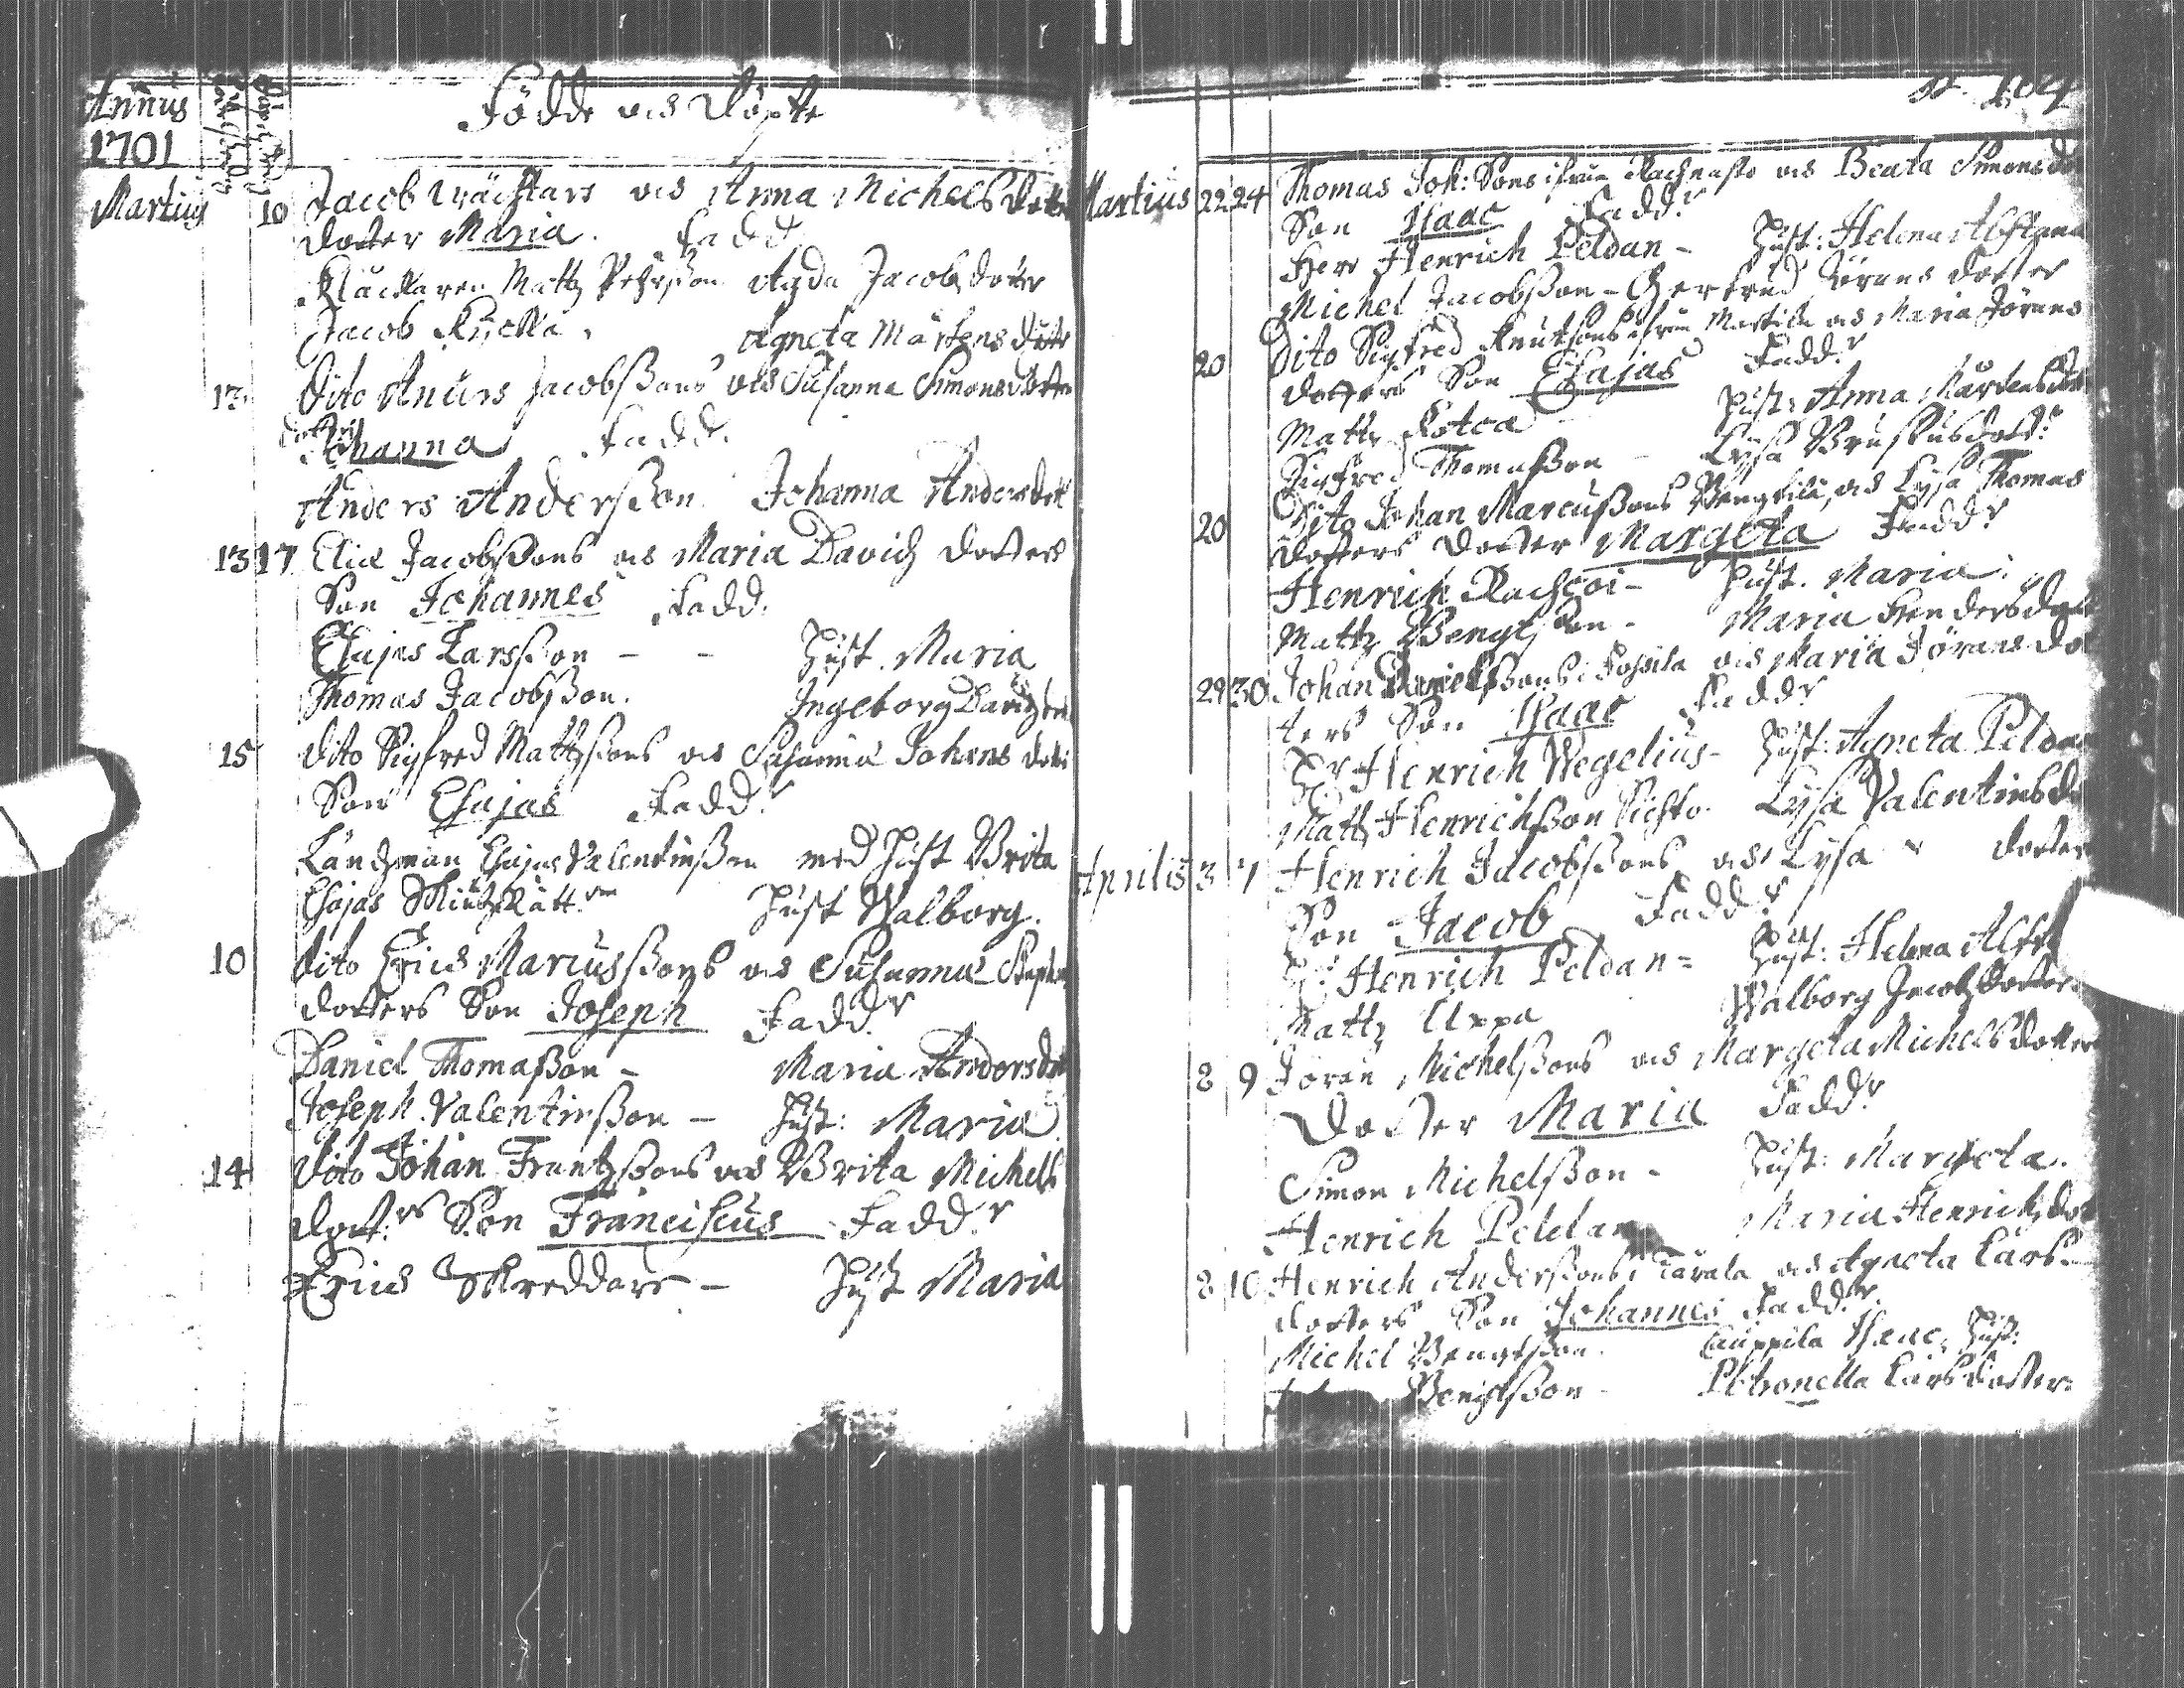 Annus
1701
Födde och Döpte
Martius 10 Jacob Wächtars och Anna Michelsdotter
dotter Maria. Fadd.
Klåckaren Mattz Pehrsson Agda Jacobsdotter
Jacob Agneta Mårtensdotter
13 Dito Anders Jacobßons och Susanna Simonsdotter
dotter
Johanna Fadd.
Anders Anderßon. Johanna Andersdott
13 17 Elias Jacobßons och Maria Davidz dotters
Son Johannes Fadd.
Esajas Larsßon - - Hust. Maria
Thomas Jacobßon. Ingeborg Davidz
15 Dito Sigfred Mattzßons och Susanna Johans
Son Esajas Fadd.r
Ländzman Esajas Valentinßon med Hust Brita
Esajas Hust Walborg.
10 Dito Erics Marcusßons och Susanna
dotters Son Joseph Fadd.r
Daniel Thomaßon - Maria Andersdot
Joseph Valentinßon - Hust: Maria
14 Dito Johan Frantzßons och Brita Michels
dott.rs Son Franciscus Fadd.r
Erics Skreddare - Hust Maria
104
Martius 22 24 Thomas Joh: Sons ifrån och Beata Simonsdo
Son Isaac Fadd.r
Herr Henrich Peldan - Hust: Helena
Michel Jacobßon - Gertrud Jörans dotter
20 Dito Sigfred Knutsons ifrån Martila och Maria Jörans
dotters Son Esajas Fadd.r
Mattz Hust: Anna Mårtensdot
Sigfred Thomaßon - Lysa
20 Dito Johan Marcusßons och Lysa Thomas
dotters dotter Margeta Fadd.r
Henrich Hust. Maria.
Mattz Bengtßon - Maria Hendersdott
29 30 Johan Danielsßons i och Maria Jörans do
ters Son Isaac Fadd.r
H.r Henrich Wegelius - Hust: Agneta Pelda
Mattz Henrichßon Lysa Valentinsd
Aprilis 3 7 Henrich Jacobßons och Lysa dotter
Son Jacob Fadd.r
H.r Henrich Peldan = Hust: Helena
Mattz Uppa Walborg Jacobzdotter
8 9 Jöran Michelßons och Margeta Michelsdotter
Dotter Maria Fadd.r
Simon Michelßon - Hust: Margeta.
Henrich Peldan Maria Henrichzdot
8 10 Henrich Anderßons i och Agneta Lars
dotters Son Johannes Fadd.r
Michel Bengtßon. Cauppila Isaacz Hust:
Bengtßon - Petronella Larsdotter